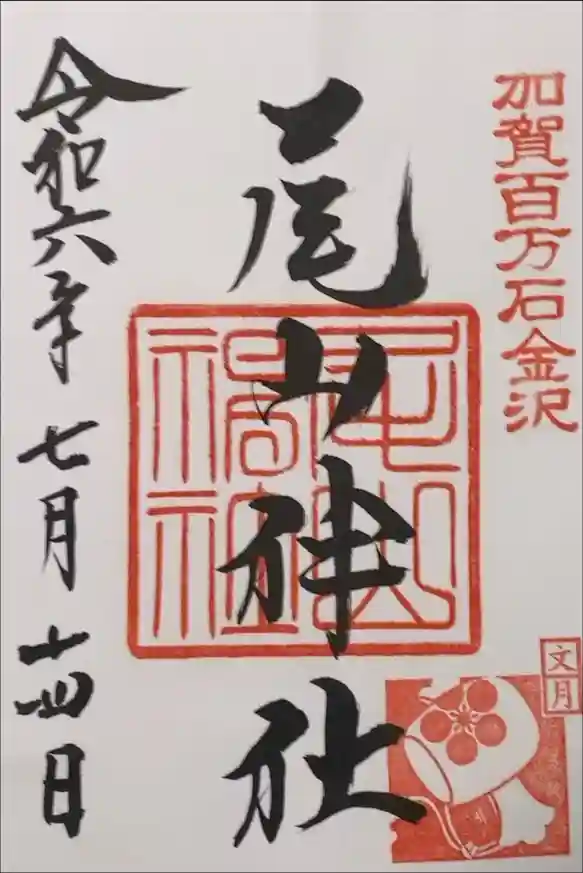 加賀百万石金沢
尾山神社
文月
令和六年七月十四日